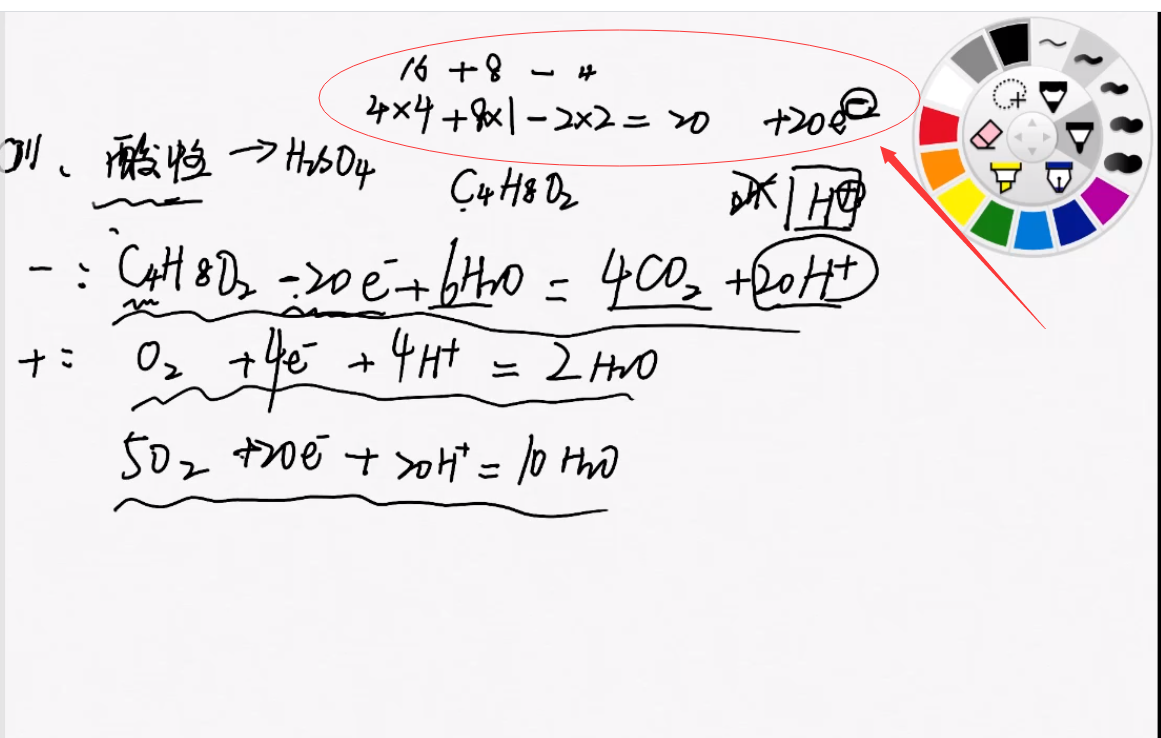 16 + 8 - 4
4×4 + 8×1 - 2×2 = 20 +20e⊖
例、酸性 → H₂SO₄ C₄H8O₂ H⊕
- : C₄H8O₂ - 20e⁻ + 6H₂O = 4CO₂ + 20H⁺
+ : O₂ + 4e⁻ + 4H⁺ = 2H₂O
5O₂ + 20e⁻ + 20H⁺ = 10H₂O